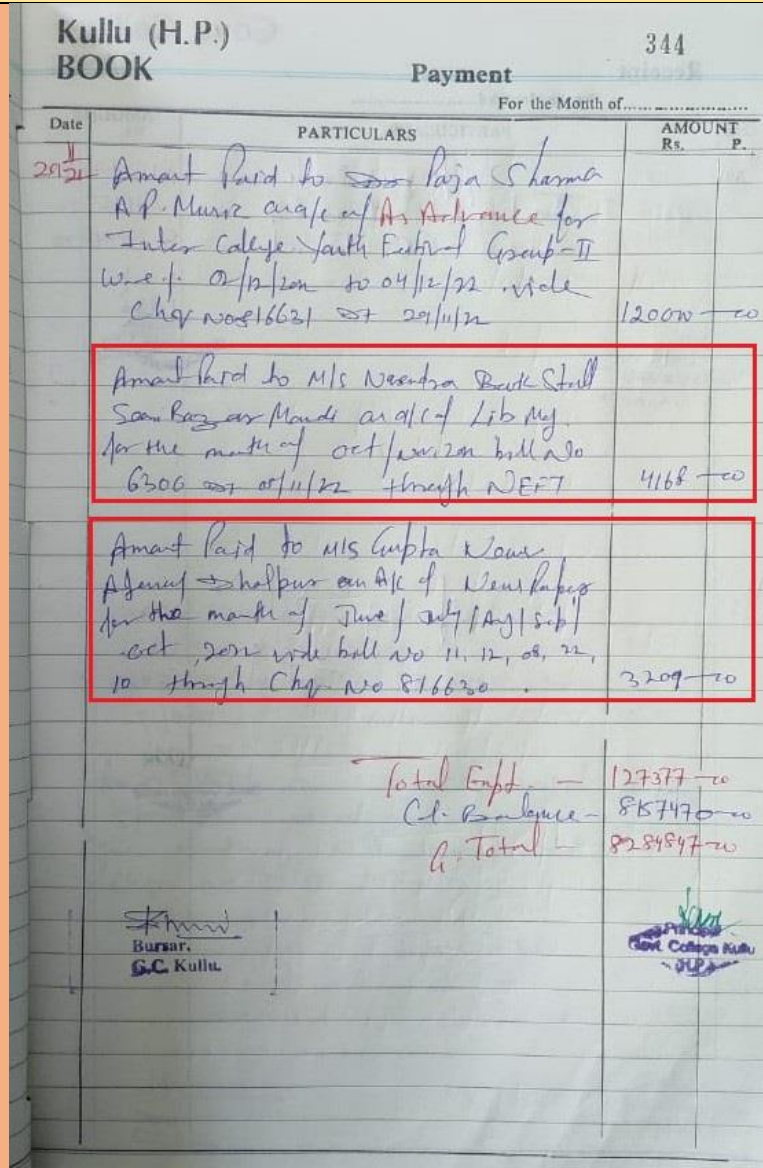 Kullu (H.P.)
344
BOOK
Payment
For the Month of
Date
PARTICULARS
AMOUNT
Rs. P.
Amant Paid to Sharma
A.P. Music on a/c of As Advance for
Inter College Youth Festival Group-II
w.e.f. 02/12/ to 04/12/22 vide
Chq No 816631 DT 29/11/22
Amant Paid to M/S Narendra Book Stall
Bazar Mandi on a/c of Lib Mg.
for the month of oct/ bill No
6306 through NEFT 4168-00
Amant Paid to M/S Gupta News
Agency Dhalpur on A/c of News Paper
for the month of June/July/Aug/Sep/
oct, 2022 vide bill No 11, 12, 08, 22,
10 through Chq No 816630. 3209-00
Total Expt. - 127377-00
Cl. Balance - 8157470-00
G. Total - 8284847-00
Bursar.
G.C. Kullu.
Principal
Govt. College Kullu
H.P.